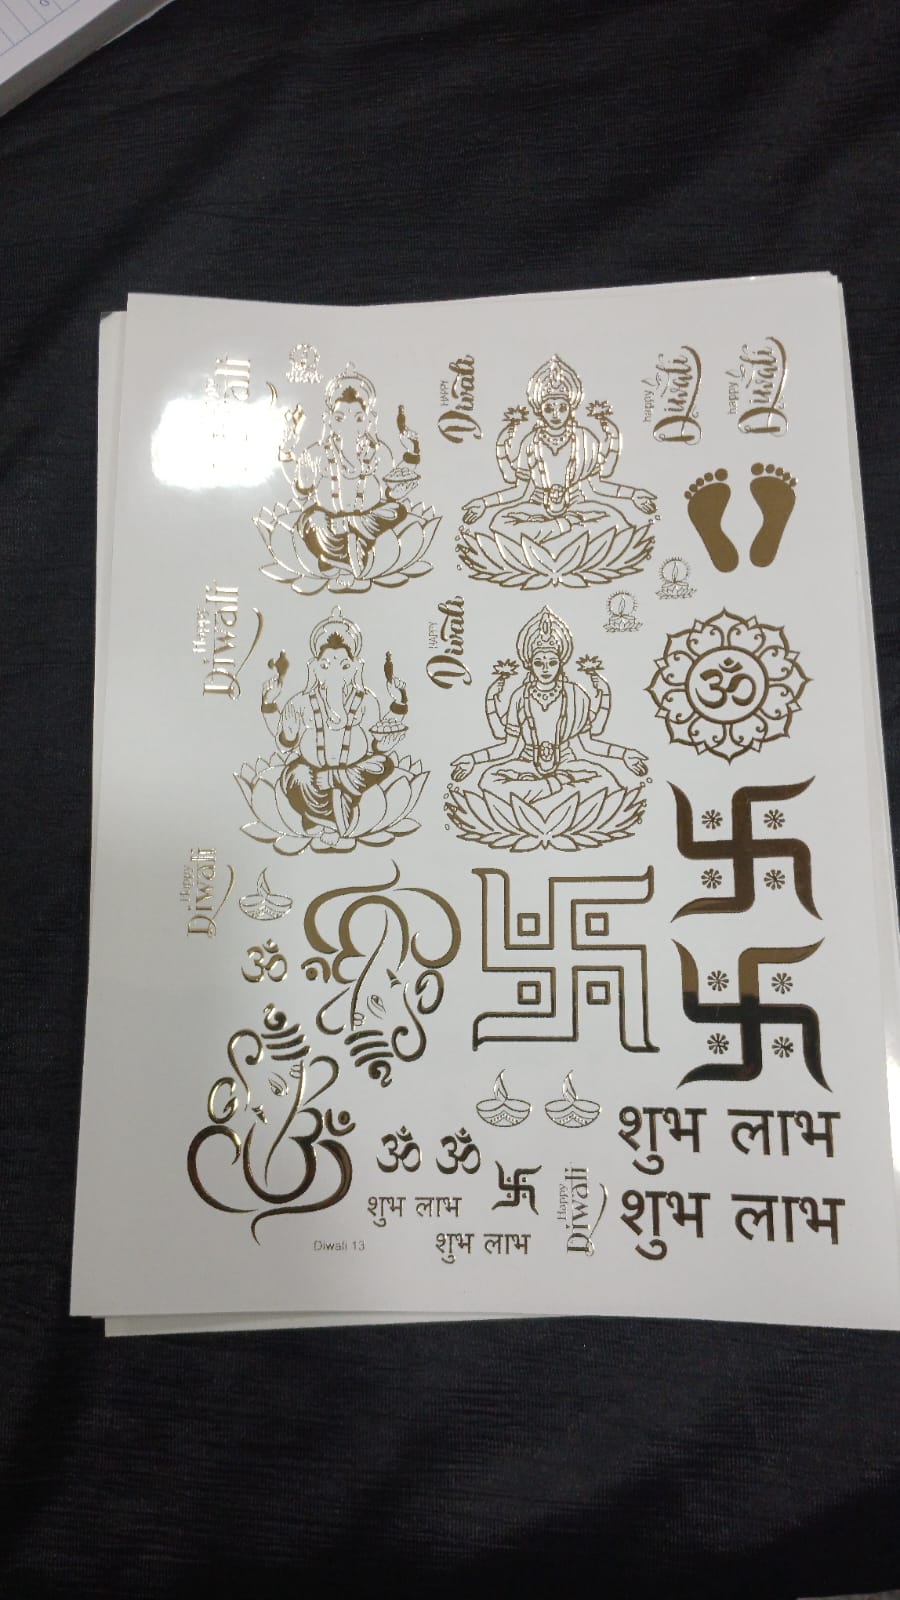 Happy
Diwali
HAPPY
Diwali
happy
Diwali
happy
Diwali
Happy
Diwali
HAPPY
Diwali
ॐ
Happy
Diwali
ॐ
ॐ ॐ
शुभ लाभ
शुभ लाभ
शुभ लाभ
शुभ लाभ
Happy
Diwali
Diwali 13